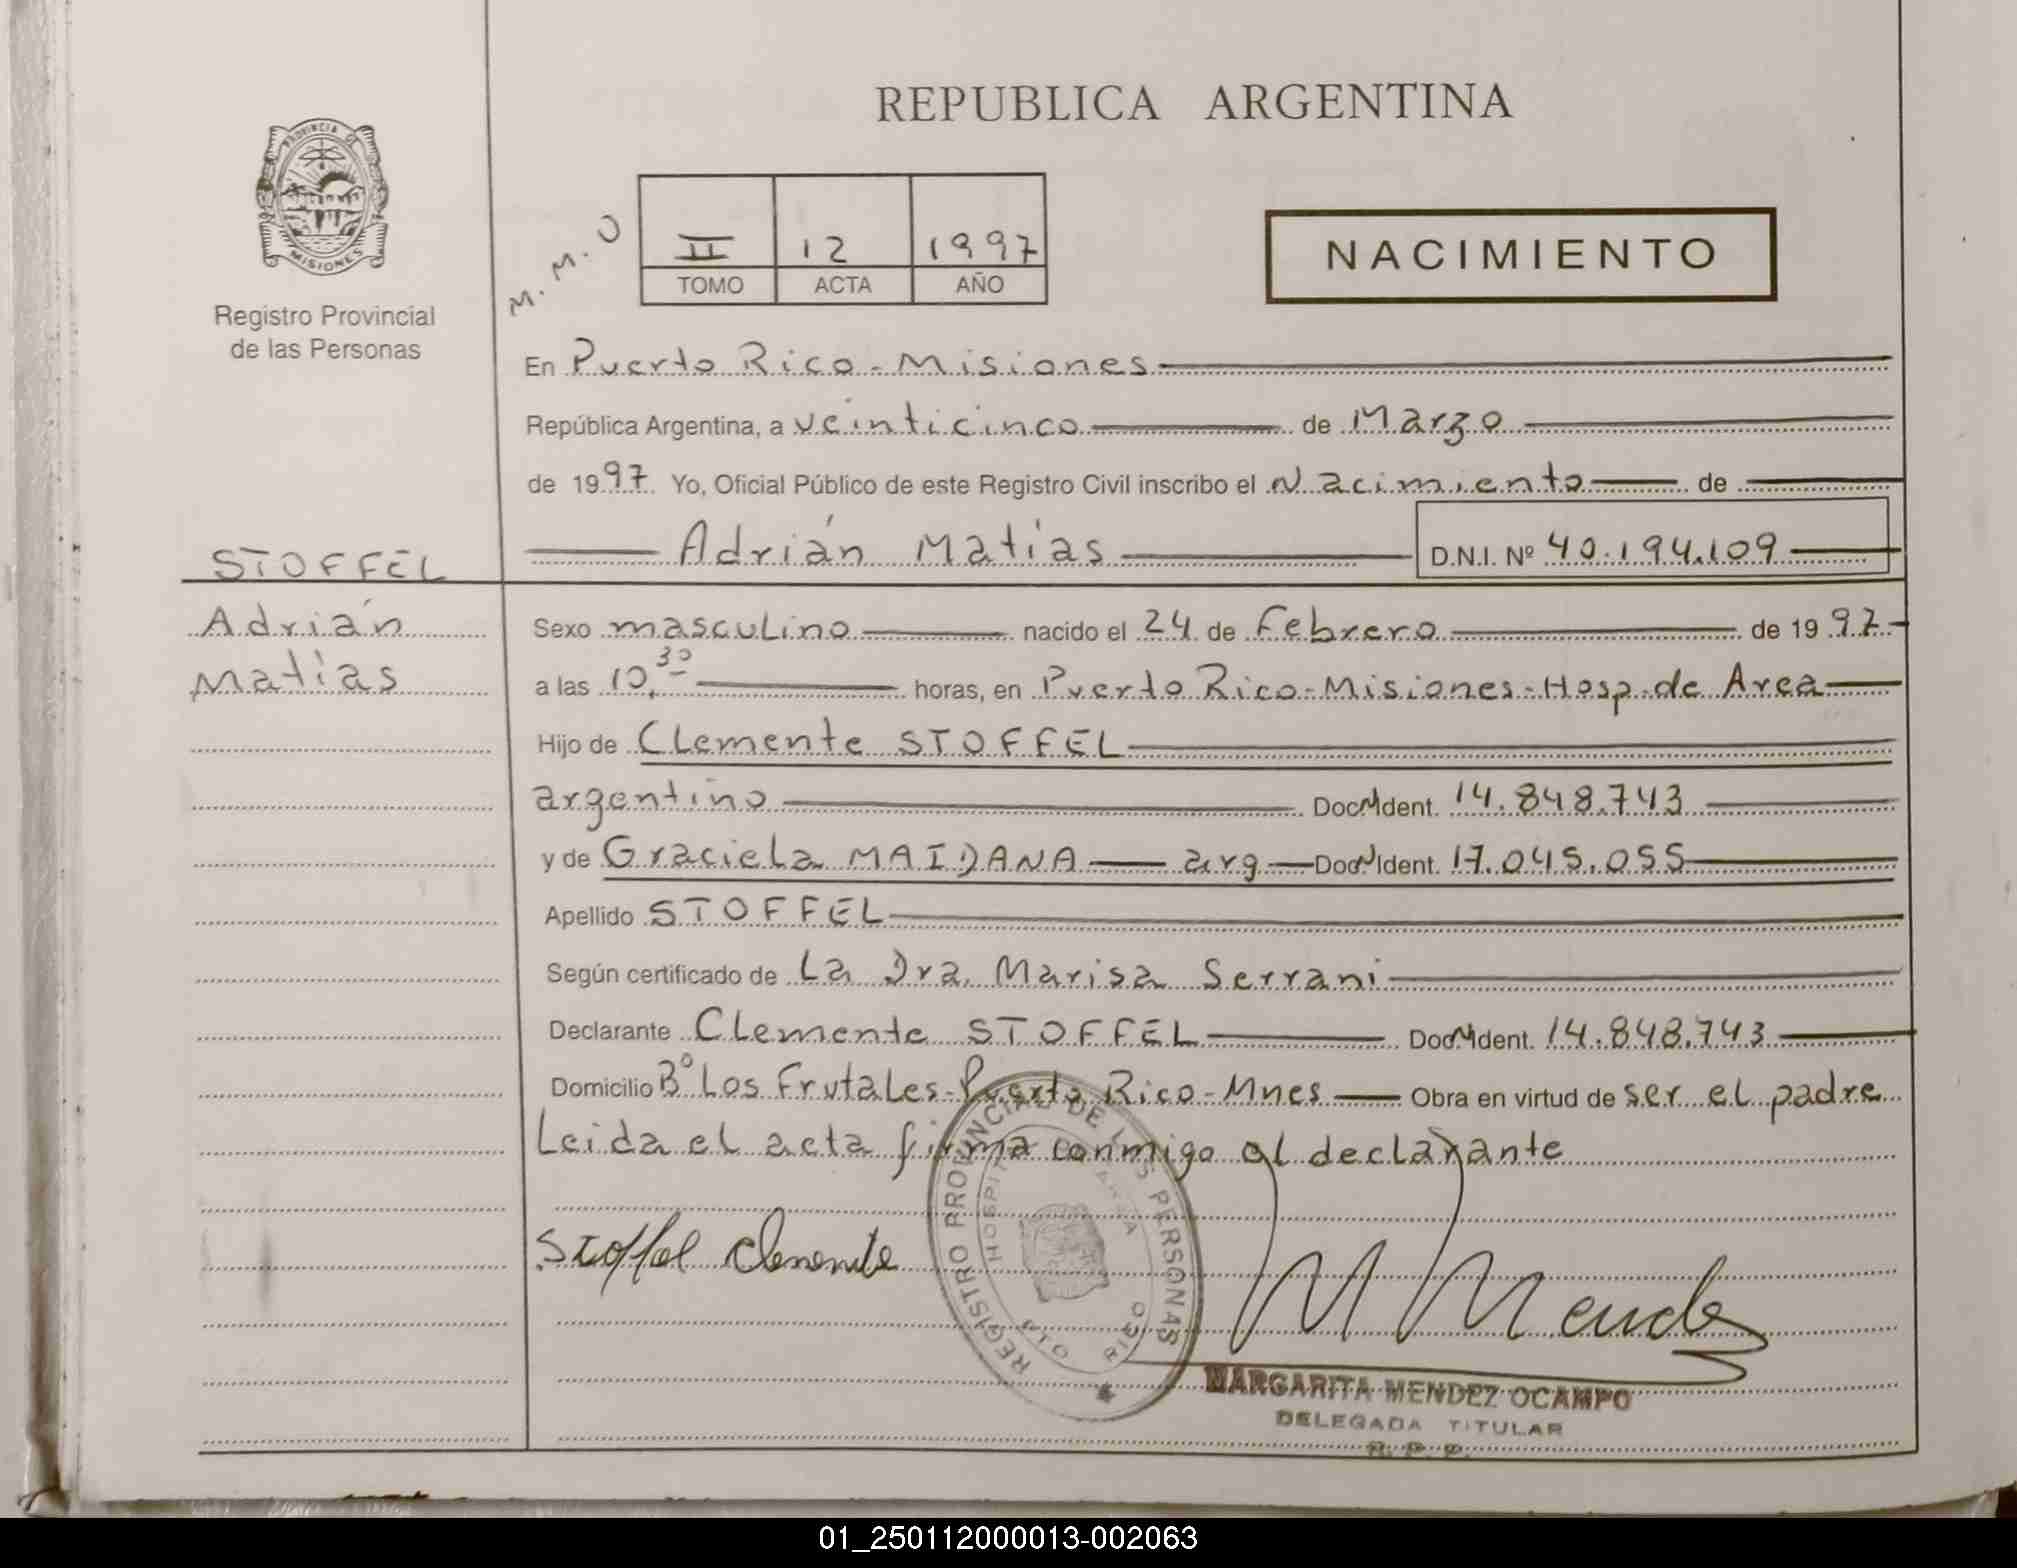 REPUBLICA ARGENTINA
PROVINCIA DE
MISIONES
Registro Provincial
de las Personas
M. M. O
II 12 1997
TOMO ACTA AÑO
NACIMIENTO
En Puerto Rico - Misiones
República Argentina, a veinticinco de Marzo
de 1997 Yo, Oficial Público de este Registro Civil inscribo el Nacimiento de
Adrián Matías D.N.I. Nº 40.194.109
STOFFEL
Adrián
Matías
Sexo masculino nacido el 24 de Febrero de 1997
a las 10,30 horas, en Puerto Rico - Misiones - Hosp. de Area
Hijo de Clemente STOFFEL
argentino Doc. Ident. 14.848.743
y de Graciela MAIDANA arg Doc. Ident. 17.045.055
Apellido STOFFEL
Según certificado de La Dra. Marisa Serrani
Declarante Clemente STOFFEL Doc. Ident. 14.848.743
Domicilio Bº Los Frutales - Puerto Rico - Mnes Obra en virtud de ser el padre
Leida el acta firma conmigo el declarante
Stoffel Clemente
REGISTRO PROVINCIAL DE LAS PERSONAS
PTO RICO
M Mendez
MARGARITA MENDEZ OCAMPO
DELEGADA TITULAR
R. P. P.
01_250112000013-002063